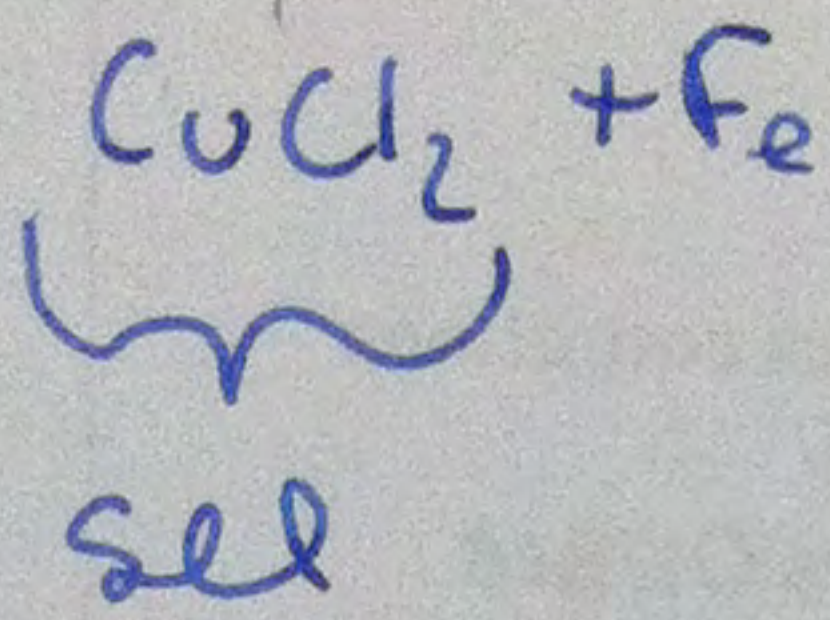 CuCl₂ + Fe
Sel